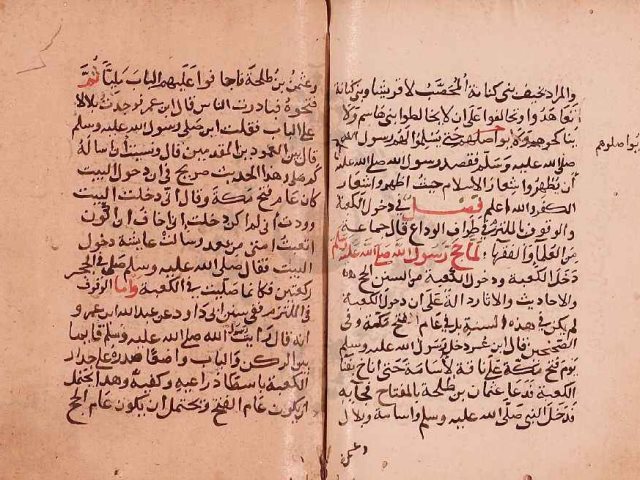 والمراد بخيف بني كنانة المحصب لان قريشا وبني كنانة
تعاهدوا وتحالفوا على ان لا يخالطوا بني هاشم ولا
يناكحوهم ولا يواصلوهم حتى يسلموا لهم رسول الله
صلى الله عليه وسلم فقصد رسول الله صلى الله عليه
ان يظهروا شعار الاسلام حيث اظهروا شعار
الكفر والله اعلم فصل في دخول الكعبة
والوقوف بالملتزم في طواف الوداع قال جماعة
من العلما والفقها لما حج رسول الله صلى الله عليه وسلم
دخل الكعبة ودخول الكعبة من السنن الحج
والاحاديث والاثار دالة على ان دخول الكعبة
لم يكن في هذه السنة بل في عام الفتح مكة وفي
الصحيحين قال ابن عمر دخل رسول الله صلى الله عليه وسلم
يوم فتح مكة على ناقة لاسامة حتى اناخ بفنا
الكعبة فدعا عثمان بن طلحة بالمفتاح فجاه به
فدخل النبي صلى الله عليه وسلم واسامة وبلال
يواصلوهم
وعثمن بن طلحة فاجافوا عليهم الباب مليا ثم
فتحوه فبادرت الناس قال ابن عمر فوجدت بلالا
على الباب فقلت اين صلى رسول الله صلى الله عليه وسلم
قال بين العمودين المقدمين قال ونسيت ان اساله
كم صلى وهذا الحديث صريح في ان دخول البيت
كان عام فتح مكة وقال اني دخلت البيت
ووددت اني لم اكن دخلت اني اخاف ان اكون
اتعبت امتي من بعدي وسالت عايشة دخول
البيت فقال صلى الله عليه وسلم صلي في الحجر
ركعتين فكانما صليت في الكعبة واما الوقوف
في الملتزم ففي سنن ابي داود عن عبد الله ابن عمرو
انه قال رايت رسول الله صلى الله عليه وسلم قايما
بين الركن والباب واضعا صدره على جدار
الكعبة باسطا ذراعيه وكفيه وهذا يحتمل
ان يكون عام الفتح ويحتمل ان يكون عام الحج